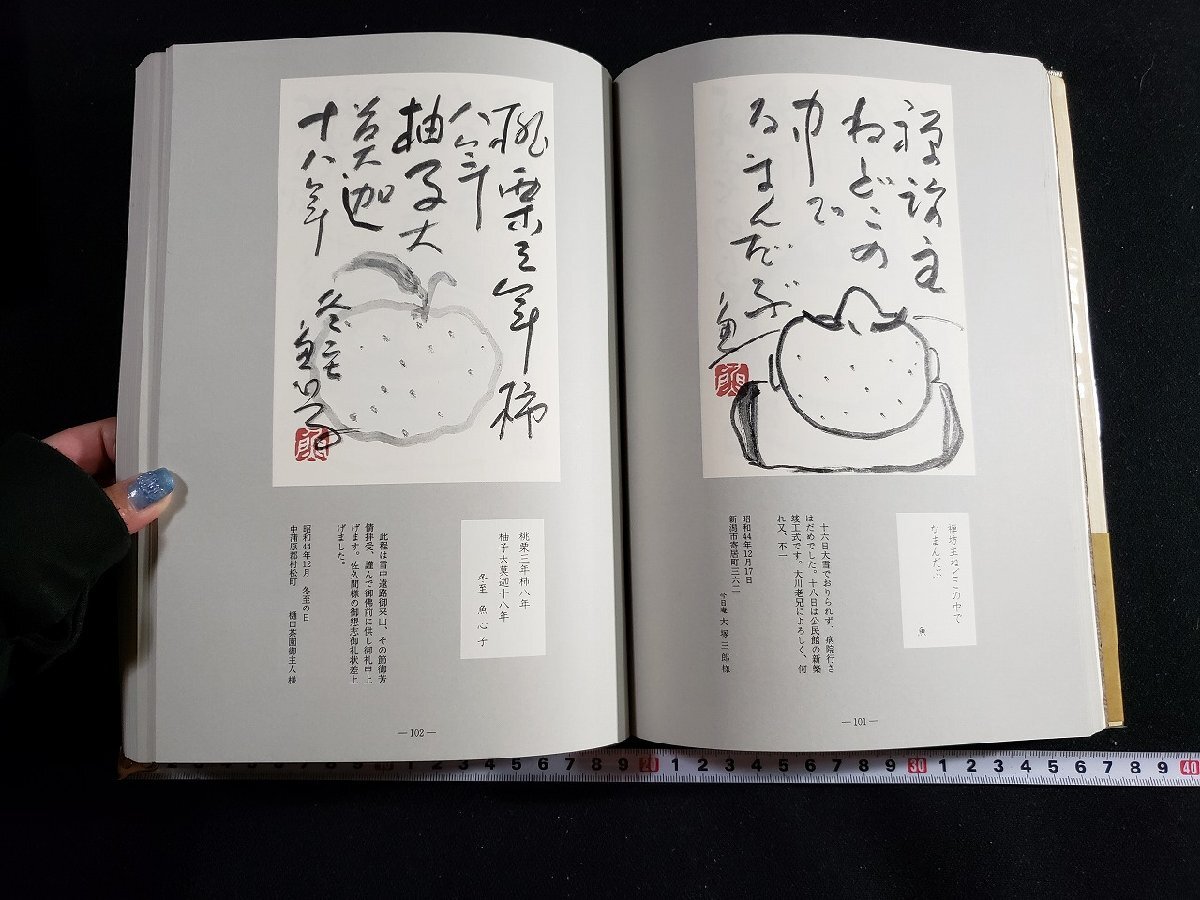 禅坊主
ねどこの
中で
なまんだぶ
魚
禅坊主ねどこの中で
なまんだぶ
魚
十六日大雪でおりられず、病院行き
はだめでした。十八日は公民館の新築
竣工式です。大川老兄によろしく、何
れ又、不一
昭和44年12月17日
新潟市寄居町三六二
今日庵 大塚三郎様
—101—
桃栗三年柿
八年
柚子大
莫迦
十八年
冬至
魚心子
桃栗三年柿八年
柚子大莫迦十八年
冬至 魚心子
此程は雪中道路御突山、その節御芳
情拝受、謹んで御佛前に供し御礼申上
げます。佐久間様の御想志御礼状差上
げました。
昭和44年12月 冬至の日
中蒲原郡村松町 樋口茶園御主人様
—102—
1 2 3 4 5 6 7 8 9 30 1 2 3 4 5 6 7 8 9 40